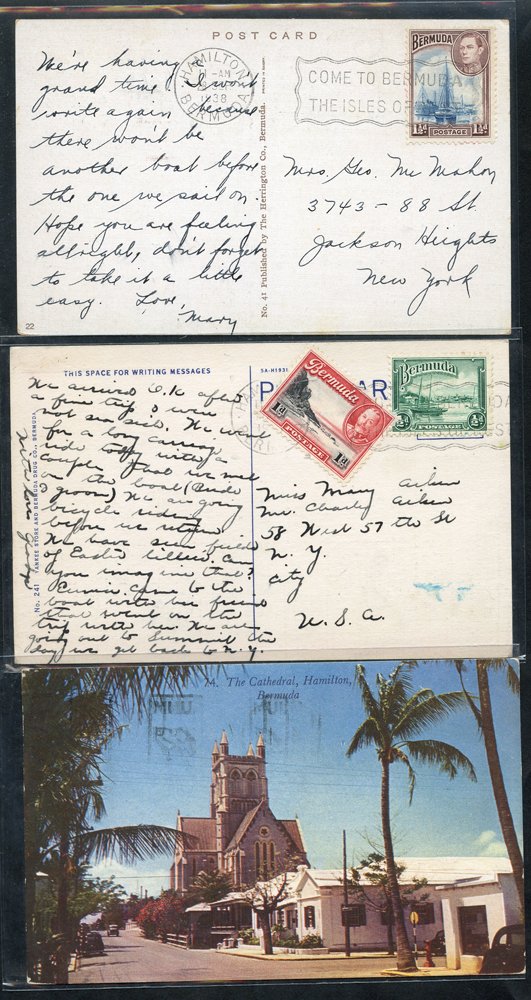 POST CARD
We're having a
grand time. I won't
write again because
there won't be
another boat before
the one we sail on.
Hope you are feeling
allright, don't forget
to take it a little
easy. Love,
Mary
22
No. 41 Published by The Herrington Co., Bermuda.
HAMILTON
AM
1938
BERMUDA
COME TO BERMUDA
THE ISLES OF
BERMUDA
1½d
POSTAGE
1½d
Mrs. Geo. Mc Mahon
3743 - 88 St.
Jackson Heights
New York
THIS SPACE FOR WRITING MESSAGES
5A-H1931
We arrived O.K after
a fine trip & were
not sea sick. We went
for a long carriage
ride today with a
couple that we met
on the boat (Bride
& groom) We are going
bicycle riding
before we return
We have seen fields
of Easter lillies, can
you imagine that?
came to the
boat with her friend
that went on the
trip with her. We are
going out to Summit the
day we get back to N.Y.
No. 241 YANKEE STORE AND BERMUDA DRUG CO., BERMUDA.
Bermuda
1d
POSTAGE
1d
Bermuda
½d
POSTAGE
½d
Miss Mary Aiken
Mr. Charly Aiken
58 West 57 th St
N. Y.
City
U. S. A.
74. The Cathedral, Hamilton,
Bermuda